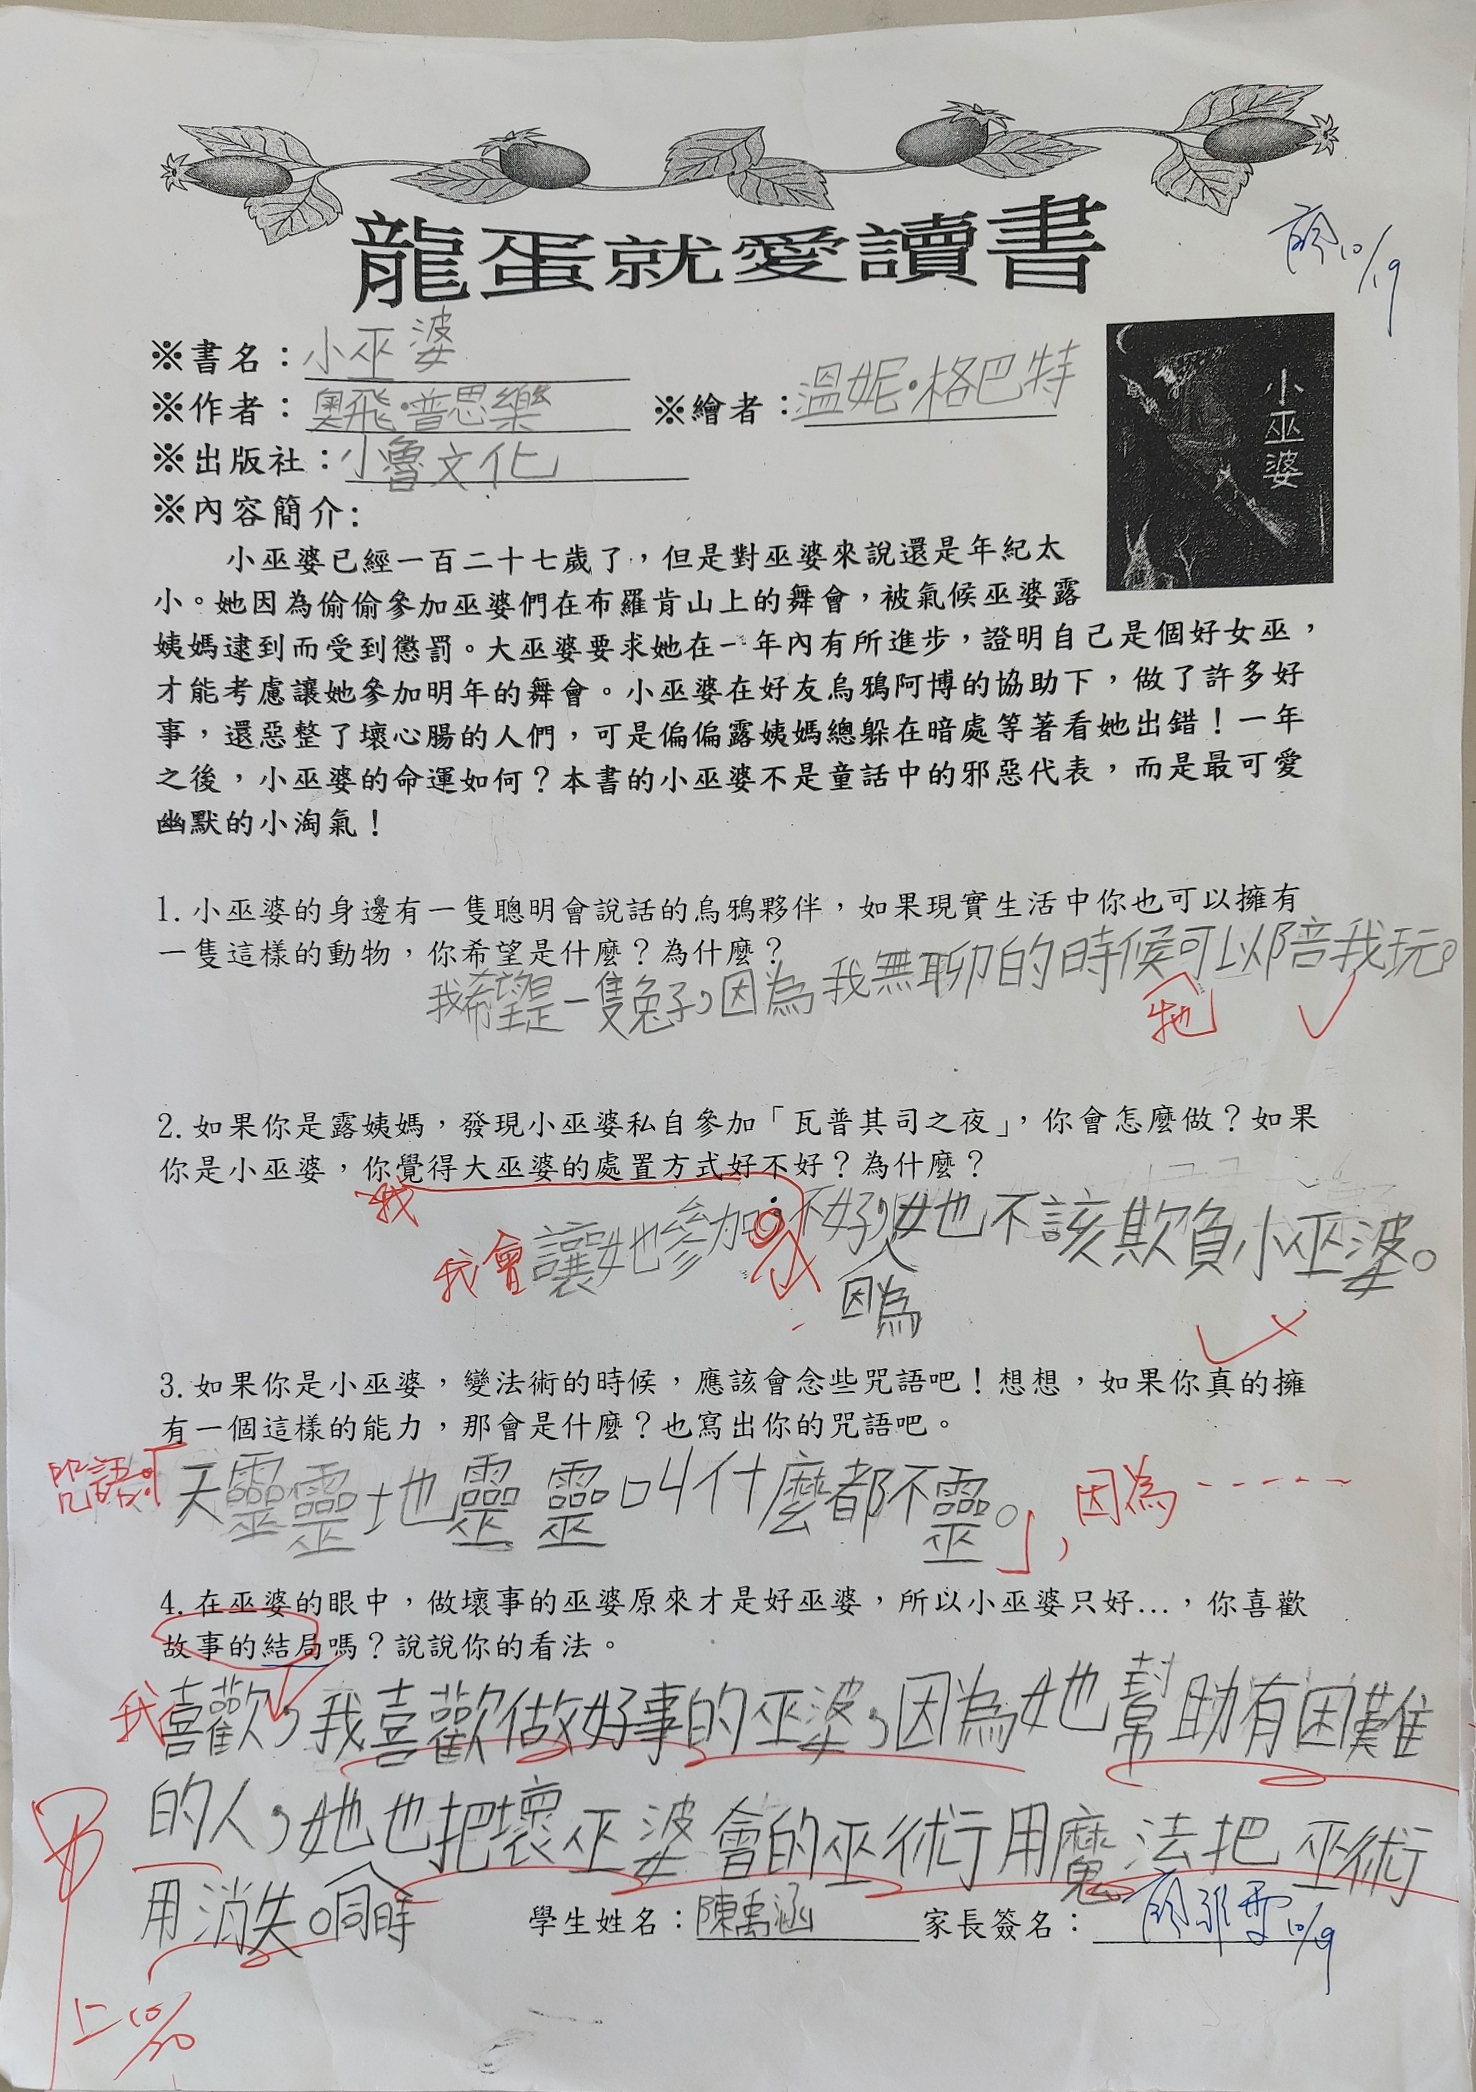 龍蛋就愛讀書
10/19
※書名：小巫婆
※作者：奧飛·普思樂 ※繪者：溫妮·格巴特
※出版社：小魯文化
小巫婆
※內容簡介：
小巫婆已經一百二十七歲了，但是對巫婆來說還是年紀太
小。她因為偷偷參加巫婆們在布羅肯山上的舞會，被氣候巫婆露
姨媽逮到而受到懲罰。大巫婆要求她在一年內有所進步，證明自己是個好女巫，
才能考慮讓她參加明年的舞會。小巫婆在好友烏鴉阿博的協助下，做了許多好
事，還惡整了壞心腸的人們，可是偏偏露姨媽總躲在暗處等著看她出錯！一年
之後，小巫婆的命運如何？本書的小巫婆不是童話中的邪惡代表，而是最可愛
幽默的小淘氣！
1. 小巫婆的身邊有一隻聰明會說話的烏鴉夥伴，如果現實生活中你也可以擁有
一隻這樣的動物，你希望是什麼？為什麼？
我希望是一隻兔子，因為我無聊的時候可以陪我玩。
牠
2. 如果你是露姨媽，發現小巫婆私自參加「瓦普其司之夜」，你會怎麼做？如果
你是小巫婆，你覺得大巫婆的處置方式好不好？為什麼？
我
我會讓她參加。不好，她不該欺負小巫婆。
因為
3. 如果你是小巫婆，變法術的時候，應該會念些咒語吧！想想，如果你真的擁
有一個這樣的能力，那會是什麼？也寫出你的咒語吧。
咒語：「天靈靈地靈靈叫什麼都不靈。」，因為-----
4. 在巫婆的眼中，做壞事的巫婆原來才是好巫婆，所以小巫婆只好…，你喜歡
故事的結局嗎？說說你的看法。
我喜歡，我喜歡做好事的巫婆，因為她幫助有困難
的人，她也把壞巫婆會的巫術用魔法把巫術
用消失。同時
學生姓名：陳禹涵 家長簽名：
10/19
10/20